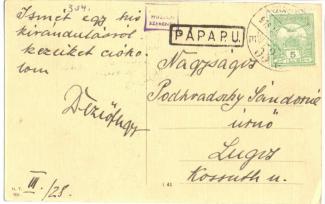 304.
Ismét egy kis
kirándulásról
kezüket csóko
lom
Dezsőfugy
III/28.
PÁPA P.U.
Nagyságos
Podhradszky Sándorné
úrnő
Lugos
Kossuth u.
5